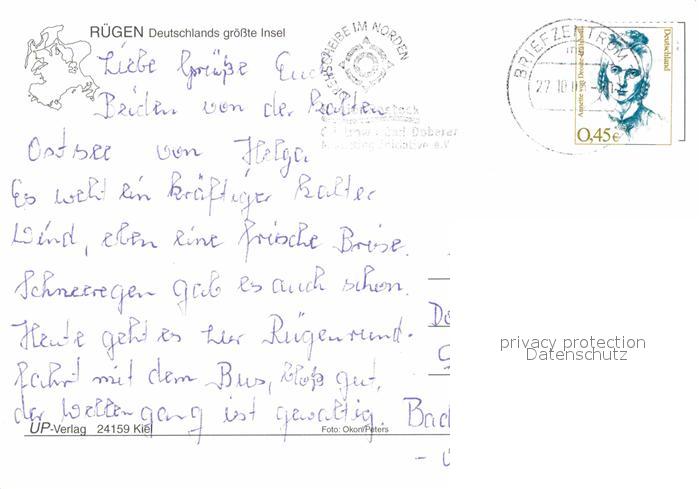 RÜGEN Deutschlands größte Insel
Liebe Grüße Euch
Beiden von der kalten
Ostsee von Helga
Es weht ein kräftiger kalter
Wind, eben eine frische Brise.
Schneeregen gab es auch schon.
Heute geht es zur Rügenrund-
fahrt mit dem Bus, bloß gut,
der Wellengang ist gewaltig. Bad
ÜP-Verlag 24159 Kiel
Foto: Okon/Peters
IM NORDEN
Bad Doberan
Initiative e.V.
BRIEFZENTRUM
27.10.0
Deutschland
0,45€
privacy protection
Datenschutz